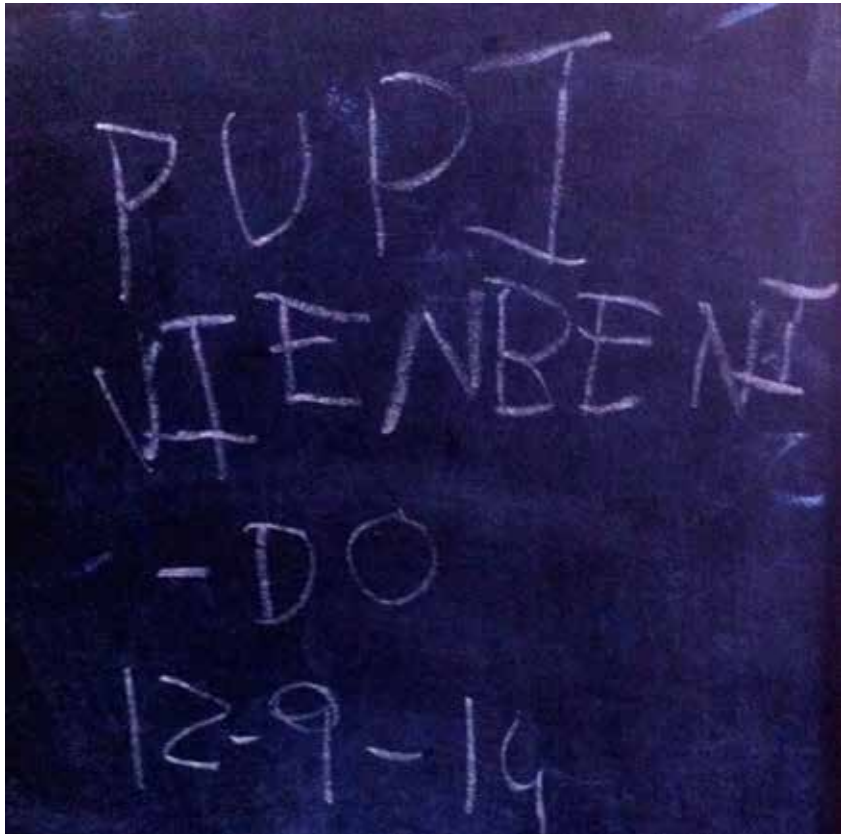 PUPI
VIENBENI
-DO
12-9-14